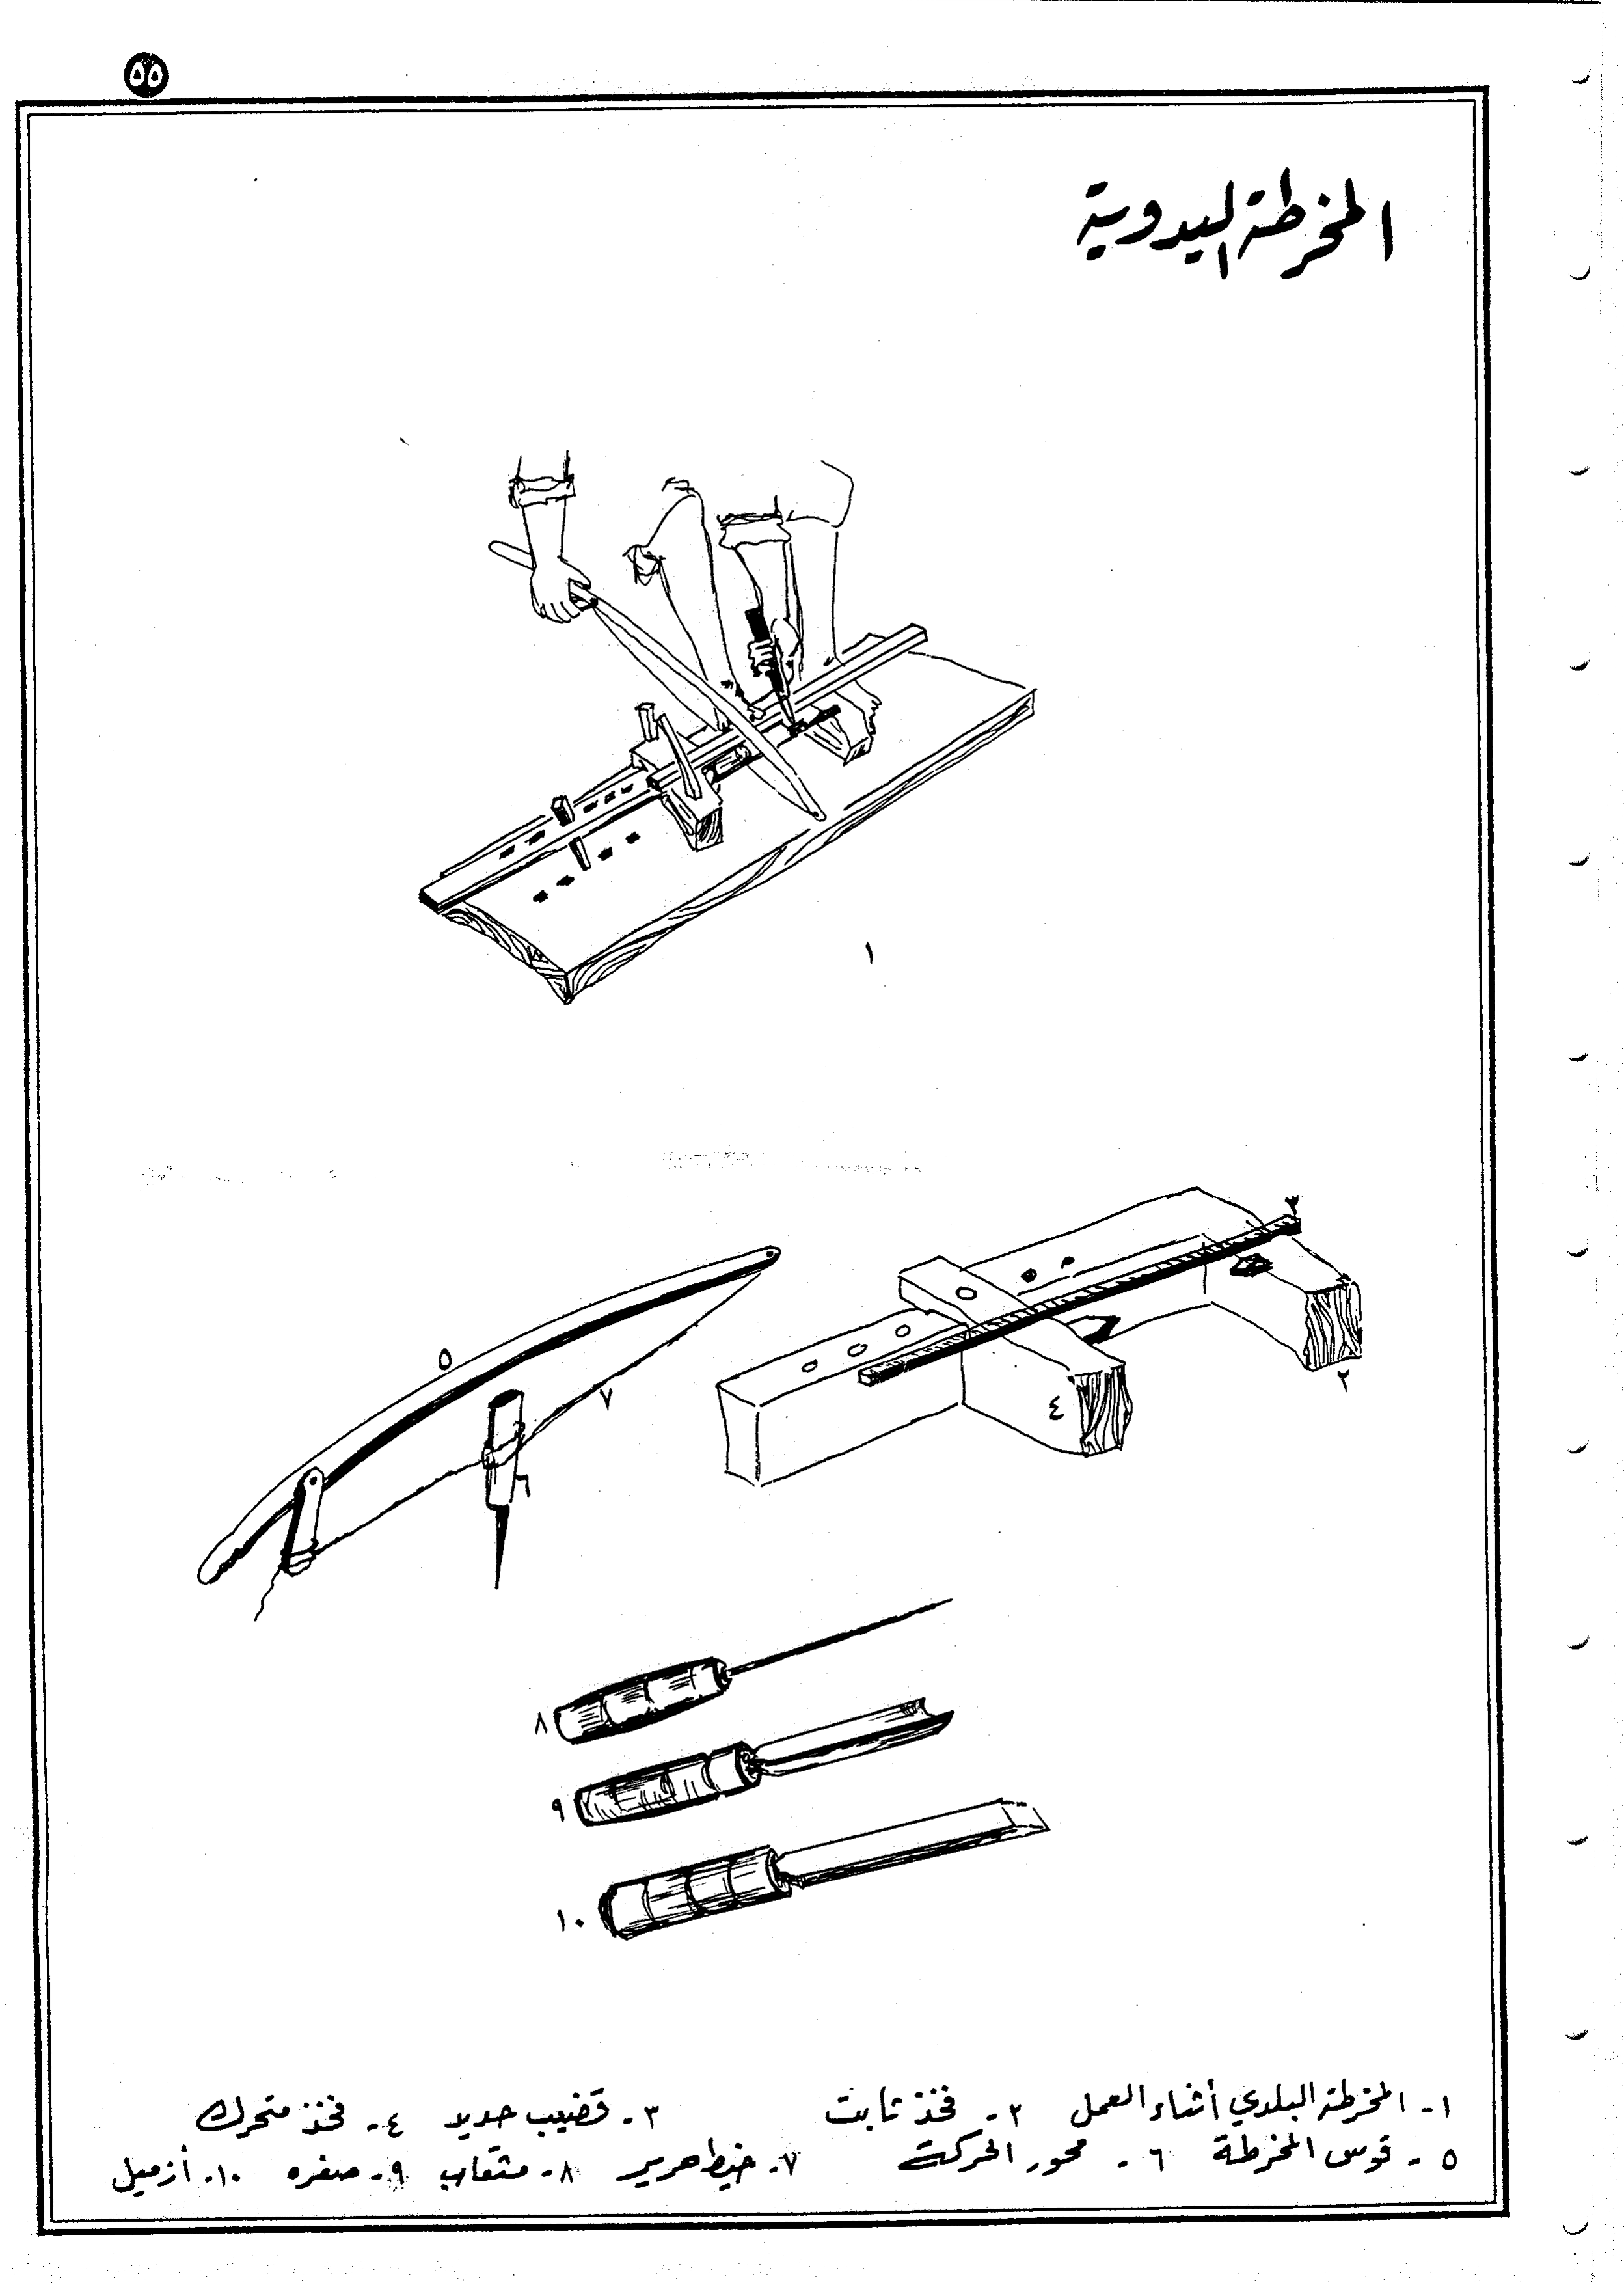 ٥٥
المخرطة اليدوية
١
٣
٥
٧
٢
٤
٦
٨
٩
١٠
١- المخرطة البلدي أثناء العمل ٢- فخذ ثابت ٣- قضيب حديد ٤- فخذ متحرك
٥- قوس المخرطة ٦- محور الحركة ٧- خيط حرير ٨- مثقاب ٩- صفره ١٠- أزميل